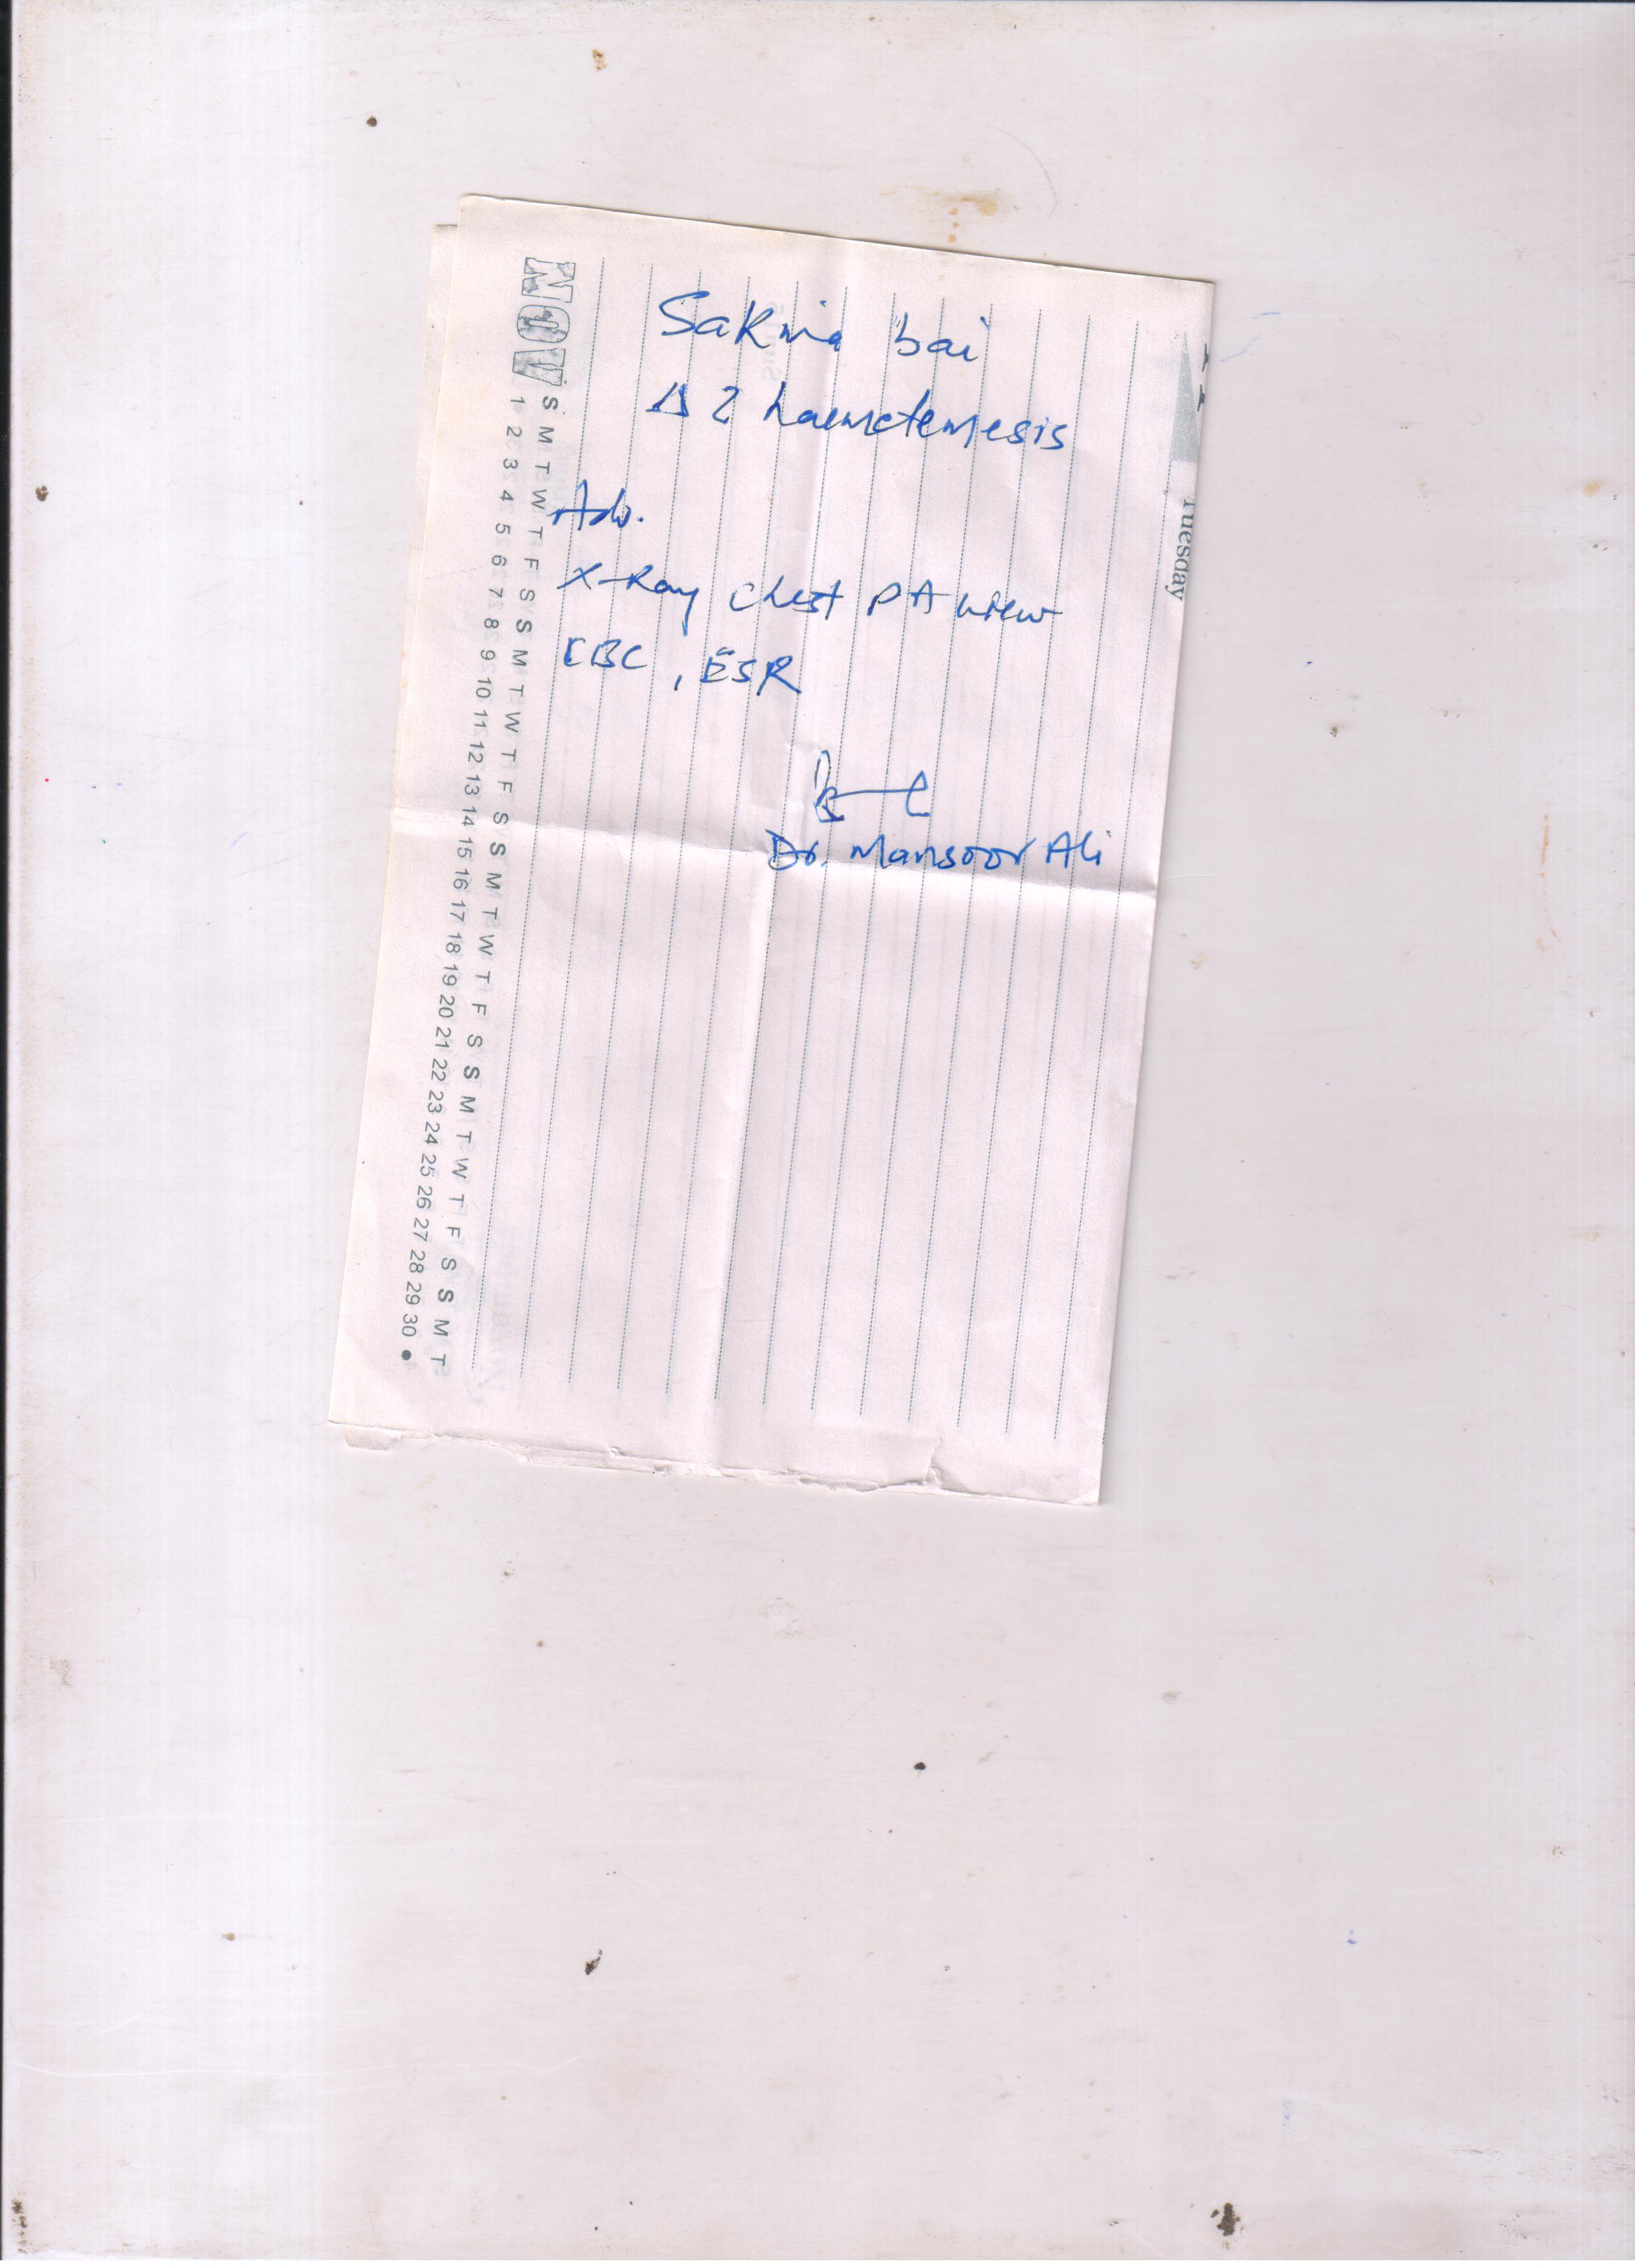 Sakina bai
Δ ? haemetemesis
Adv.
X-Ray chest PA view
CBC, ESR
Dr. Mansoor Ali
NOV
S M T W T F S S M T W T F S S M T W T F S S M T W T F S S M T
1 2 3 4 5 6 7 8 9 10 11 12 13 14 15 16 17 18 19 20 21 22 23 24 25 26 27 28 29 30 •
Tuesday